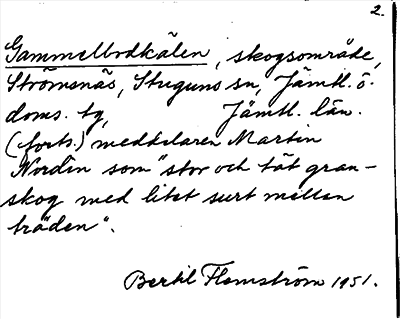 2.
Gammelbodkälen, skogsområde,
Strömsnäs, Stuguns sn, Jämtl. ö.
doms. tg, Jämtl. län.
(forts.) meddelaren Martin
Nordin som "stor och tät gran-
skog med litet surt mellan
träden".
Bertil Flemström 1951.